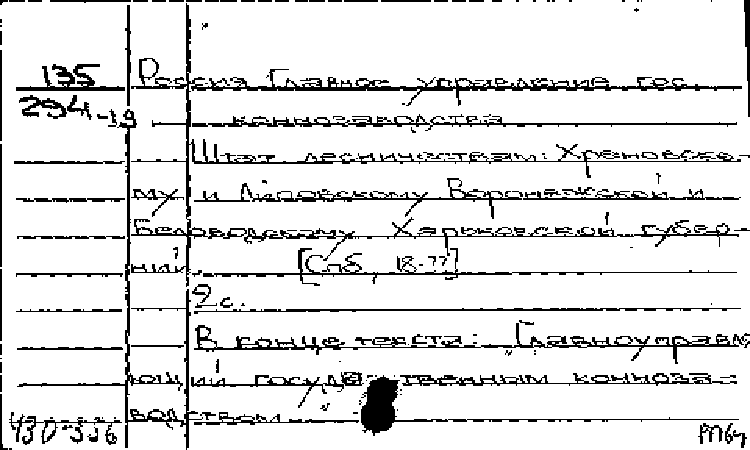 135 Россия Главное управление гос.
294-19 коннозаводства
Штат лесничествам: Хреновско-
му и Липовскому Воронежской и
Беловодскому Харьковской губер-
ний. [Спб, 18-??]
2с.
В конце текста: Главноуправля
ющий государственным конноза-
водством
430-336